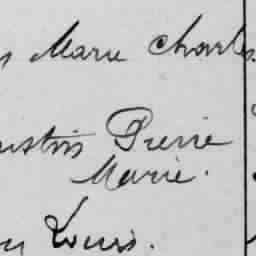 Marie Charles
Pierre
Marie.
Louis.